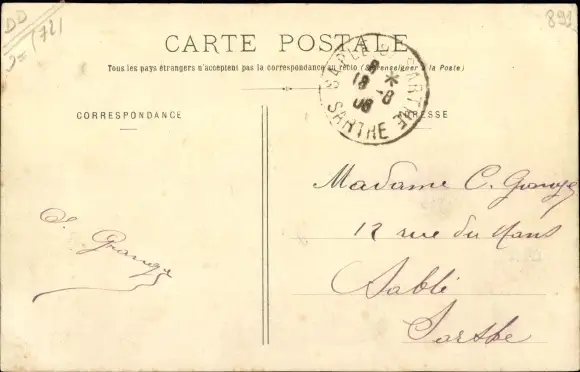 DD
D= (72)
893
CARTE POSTALE
Tous les pays étrangers n'acceptent pas la correspondance au recto (Se renseigner à la Poste)
SABLÉ-S-SARTHE
8 *
18 - 8
08
SARTHE
CORRESPONDANCE
ADRESSE
Madame C. Grange
12 rue du Mans
Sablé
Sarthe
C. Grange